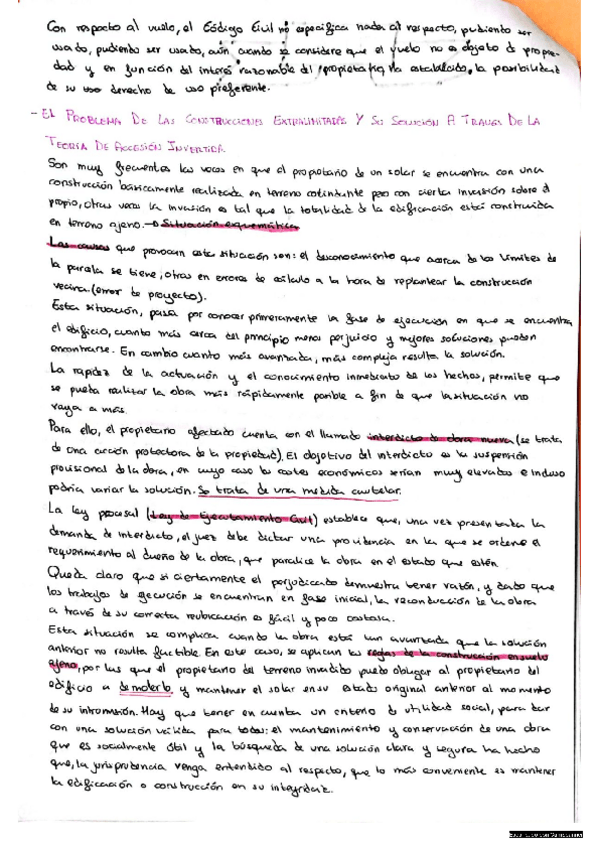 Con respecto al vuelo, el Código Civil no especifica nada al respecto, pudiendo ser
usado, pudiendo ser usado, aún cuando se considere que el vuelo no es objeto de propie-
dad y en función del interés razonable del propietario, ha establecido, la posibilidad
de su uso derecho de uso preferente.
- EL PROBLEMA DE LAS CONSTRUCCIONES EXTRALIMITADAS Y SU SOLUCIÓN A TRAVES DE LA
TEORIA DE ACCESIÓN INVERTIDA.
Son muy frecuentes las veces en que el propietario de un solar se encuentra con una
construcción básicamente realizada en terreno colindante pero con cierta invasión sobre el
propio, otras veces la invasión es tal que la totalidad de la edificación está construida
en terreno ajeno. → Situación esquemática
Las causas que provocan esta situación son: el desconocimiento que acerca de los límites de
la parcela se tiene; otras en errores de cálculo a la hora de replantear la construcción
vecina (error de proyecto).
Esta situación, pasa por conocer primeramente la fase de ejecución en que se encuentra
el edificio, cuanto más cerca del principio menos perjuicio y mejores soluciones pueden
encontrarse. En cambio cuanto más avanzada, más compleja resulta la solución.
La rapidez de la actuación y el conocimiento inmediato de los hechos, permite que
se pueda realizar la obra más rápidamente posible a fin de que la situación no
vaya a más.
Para ello, el propietario afectado cuenta con el llamado interdicto de obra nueva (se trata
de una acción protectora de la propiedad). El objetivo del interdicto es la suspensión
provisional de la obra, en cuyo caso los costes económicos serían muy elevados e incluso
podría variar la solución. Se trata de una medida cautelar.
La ley procesal (Ley de Enjuiciamiento Civil) establece que, una vez presentada la
demanda de interdicto, el juez debe dictar una providencia en la que se ordene el
requerimiento al dueño de la obra, que paralice la obra en el estado que estén.
Queda claro que si ciertamente el perjudicado demuestra tener razón, y dado que
los trabajos de ejecución se encuentran en fase inicial, la reconducción de la obra
a través de su correcta reubicación es fácil y poco costosa.
Esta situación se complica cuando la obra está tan avanzada que la solución
anterior no resulta factible. En este caso, se aplican las reglas de la construcción en suelo
ajeno, por las que el propietario del terreno invadido puede obligar al propietario del
edificio a demolerlo, y mantener el solar en su estado original anterior al momento
de su intromisión. Hay que tener en cuenta un criterio de utilidad social, para dar
con una solución válida para todos: el mantenimiento y conservación de una obra
que es socialmente útil y la búsqueda de una solución clara y segura ha hecho
que, la jurisprudencia venga entendido al respecto, que lo más conveniente es mantener
la edificación o construcción en su integridad.